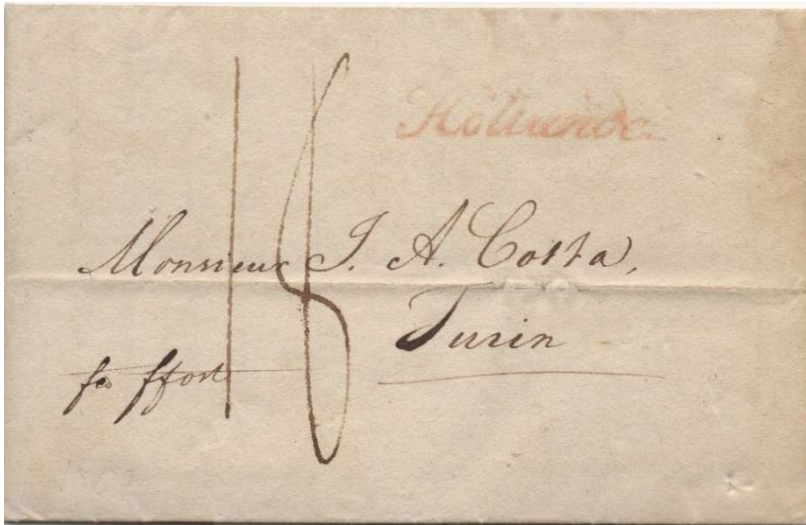 Hollande.
18
Monsieur J. A. Costa,
Turin
fco ffort